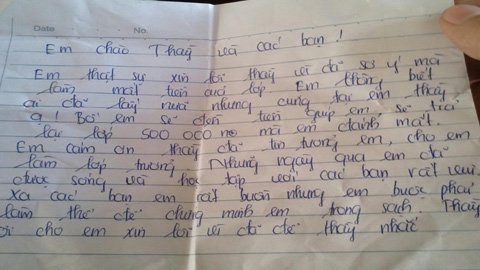 Date No.
Em chào Thầy và các bạn!
Em thật sự xin lỗi thầy vì đã sơ ý mà
làm mất tiền của lớp. Em không biết
ai đã lấy nưa nhưng cung tại em thầy
ạ! Bởi em sẽ đền tiền giúp em sẽ trả
lại lớp 500 000 mà em đánh mất.
Em cảm ơn thầy đã tin tưởng em, cho em
làm lớp trưởng. Những ngày qua em đã
được sống và học tập với các bạn rất vui.
Xa các bạn em rất buồn nhưng em buộc phải
làm thế để chưng minh em trong sạch. Thầy
cho em xin lỗi vì đã để thầy nhắc